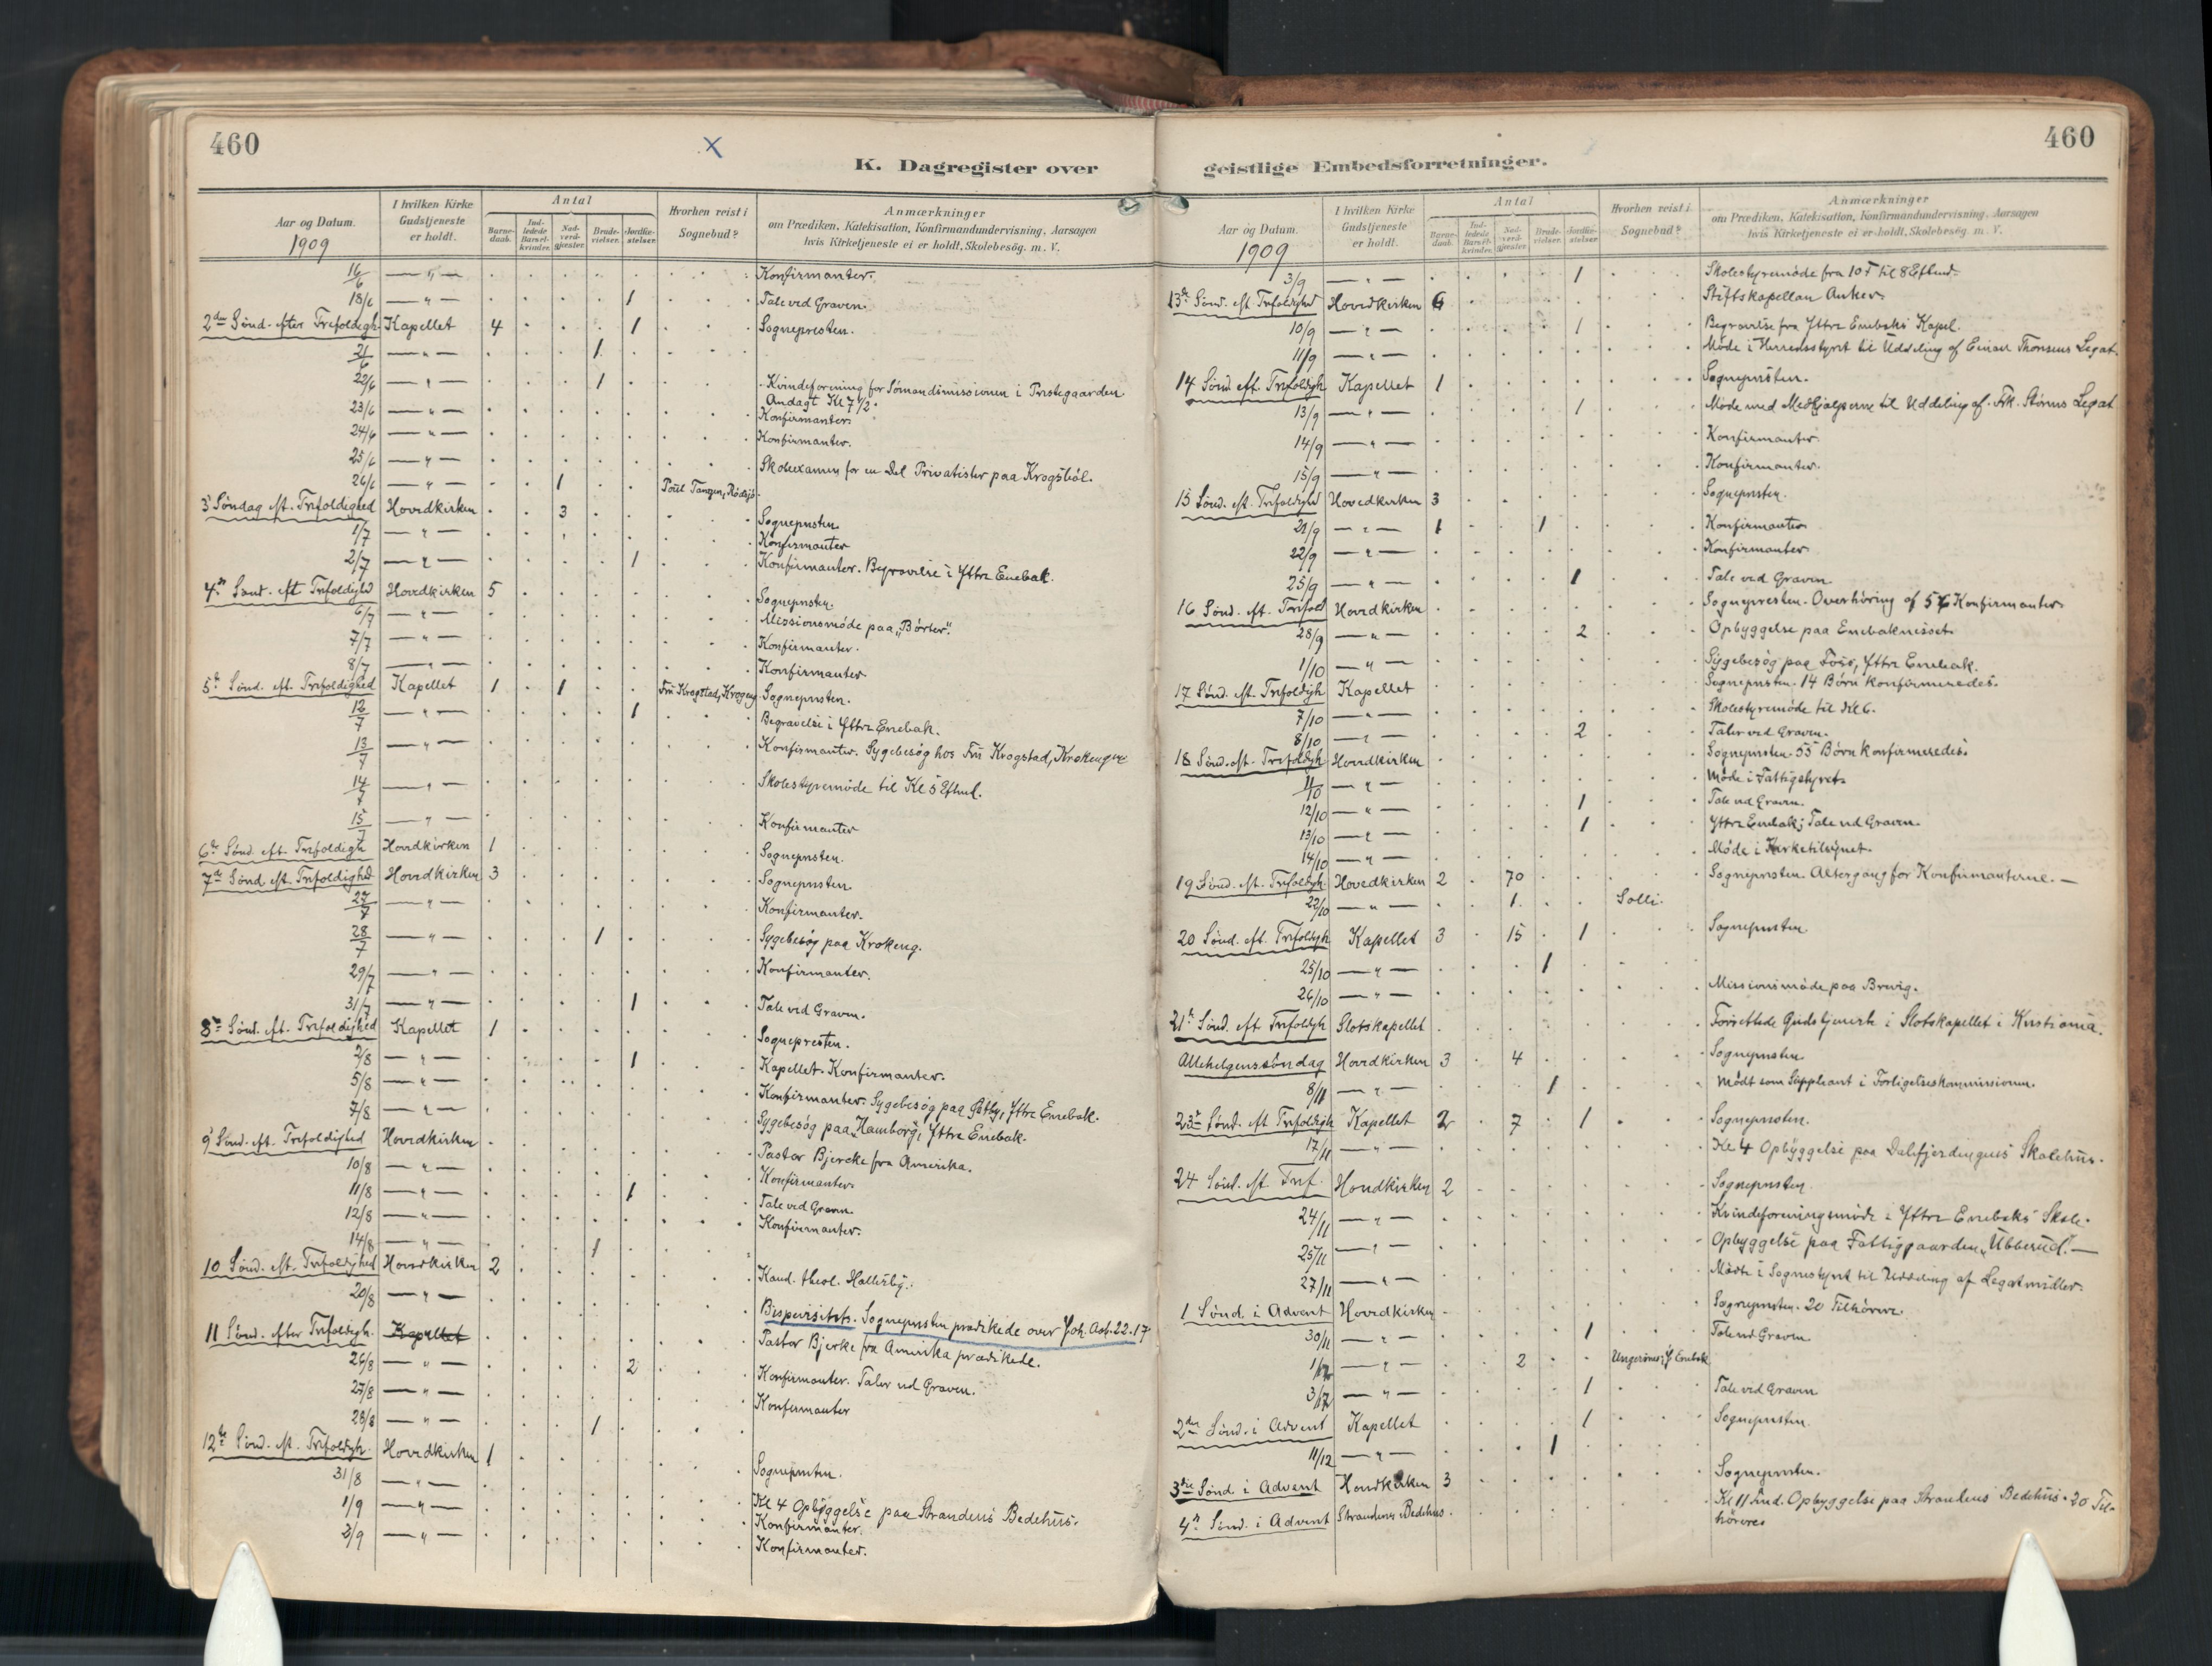 460
K. Dagregister over
Aar og Datum.
1909
I hvilken Kirke
Gudstjeneste
er holdt.
Antal
Barne-
daab.
Ind-
ledede
Barsel-
kvinder.
Nad-
verd-
gjæster.
Brude-
vielser.
Jordfæ-
stelser.
Hvorhen reist i
Sognebud?
Anmærkninger
om Prædiken, Katekisation, Konfirmandundervisning, Aarsagen
hvis Kirketjeneste ei er holdt, Skolebesög. m. V.
16/6 — " — Konfirmanter.
18/6 — " — 1 Tale ved Graven.
2den Sønd. efter Trefoldigh. Kapellet 4 1 Sognepresten.
21/6 — " — 1
22/6 — " — 1 Kvindeforening for Sømandsmissionen i Prestegaarden
Andagt Kl 7 1/2.
23/6 — " — Konfirmanter.
24/6 — " — Konfirmanter.
25/6 — " — Skoleexamen for en Del Privatister paa Krogsbøl.
26/6 — " — 1 Poul Tangen, Rødsjø.
3' Søndag eft. Trefoldighed Hovedkirken 3 Sognepresten
1/7 — " — Konfirmanter
2/7 — " — 1 Konfirmanter. Begravelse i Yttre Enebak.
4de Sønd. eft Trefoldighd Hovedkirken 5 Sognepresten.
6/7 — " — Missionsmøde paa „Børter".
7/7 — " — Konfirmanter.
8/7 — " — Konfirmanter
5te Sønd. eft. Trefoldighed Kapellet 1 1 Fru Krogstad, Krogeng Sognepresten.
12/7 — " — 1 Begravelse i Yttre Enebak.
13/7 — " — Konfirmanter. Sygebesøg hos Fru Krogstad, Krokengen
14/7 — " — Skolestyremøde til Kl 5 Eftmd.
15/7 — " — Konfirmanter
6te Sønd. eft. Trefoldigh Hovedkirken 1 Sognepresten.
7de Sønd eft. Trefoldighed Hovedkirken 3 Sognepresten
27/7 — " — Konfirmanter.
28/7 — " — 1 Sygebesøg paa Krokeng.
29/7 — " — Konfirmanter.
31/7 — " — 1 Tale ved Graven.
8de Sønd. eft. Trefoldighed Kapellet 1 Sognepresten.
2/8 — " — 1 Kapellet. Konfirmanter.
5/8 — " — Konfirmanter. Sygebesøg paa Yttre Enebak.
7/8 — " — Sygebesøg paa „Hamborg", Yttre Enebak.
9' Sønd. eft. Trefoldighed Hovedkirken Pastor Bjercke fra Amerika.
10/8 — " — Konfirmanter
11/8 — " — 1 Tale ved Graven
12/8 — " — Konfirmanter.
14/8 — " — 1
10 Sønd. eft. Trefoldighed Hovedkirken 2 Kand. theol. Hallesby.
20/8 — " — Bispevisitats. Sognepresten prædikede over Joh. Aab. 22.17
11 Sønd. efter Trefoldigh. Kapellet Pastor Bjerke fra Amerika prædikede.
26/8 — " — 2 Konfirmanter. Taler ved Graven.
27/8 — " — Konfirmanter
28/8 — " — 1
12te Sønd. eft. Trefoldigh. Hovedkirken 1 Sognepresten.
31/8 — " — Kl 4 Opbyggelse paa Strandens Bedehus.
1/9 — " — Konfirmanter.
2/9 — " — Konfirmanter.
460
geistlige Embedsforretninger.
Aar og Datum.
1909
I hvilken Kirke
Gudstjeneste
er holdt.
Antal
Barne-
daab.
Ind-
ledede
Barsel-
kvinder.
Nad-
verd-
gjæster.
Brude-
vielser.
Jordfæ-
stelser.
Hvorhen reist i
Sognebud?
Anmærkninger
om Prædiken, Katekisation, Konfirmandundervisning, Aarsagen
hvis Kirketjeneste ei er holdt, Skolebesög. m. V.
3/9 — " — 1 Skolestyremøde fra 10 F til 8 Eftmd.
13de Sønd. eft. Trefoldighed Hovedkirken 6 Stiftskapellan Anker.
10/9 — " — 1 Begravelse fra Yttre Enebaks Kapel.
11/9 — " — Møde i Herredsstyret til Uddeling af Einar Thonsens Legat.
14 Sønd. eft. Trefoldigh Kapellet 1 Sognepresten.
13/9 — " — 1 Møde med Medhjælperne til Uddeling af Frk. Størens Legat
14/9 — " — Konfirmanter.
15/9 — " — Konfirmanter.
15 Sønd. eft. Trefoldighed Hovedkirken 3 Sognepresten.
21/9 — " — 1 1 Konfirmanter
22/9 — " — Konfirmanter
25/9 — " — 1 Tale ved Graven.
16 Sønd. eft. Trefold Hovedkirken Sognepresten. Overhøring af 56 Konfirmanter
28/9 — " — 2 Opbyggelse paa Enebaknesset.
1/10 — " — Sygebesøg paa Foss, Yttre Enebak.
17 Sønd. eft. Trefoldigh Kapellet Sognepresten. 14 Børn konfirmeredes.
7/10 — " — Skolestyremøde til Kl 6.
8/10 — " — 2 Taler ved Graven.
18 Sønd. eft. Trefoldigh Hovedkirken Sognepresten. 55 Børn konfirmeredes.
11/10 — " — Møde i Fattigstyret.
12/10 — " — 1 Tale ved Graven.
13/10 — " — 1 Yttre Enebak; Tale ved Graven.
14/10 — " — Møde i Kirketilsynet.
19 Sønd. eft. Trefoldigh Hovedkirken 2 70 Sognepresten. Altergang for Konfirmanterne. —
22/10 — " — 1 Solli.
20 Sønd. eft. Trefoldigh Kapellet 3 15 1 Sognepresten
25/10 — " — 1
26/10 — " — Missionsmøde paa Brevig.
21de Sønd. eft Trefoldigh Slotskapellet Forrettede Gudstjeneste i Slotskapellet i Kristiania.
Allehelgenssøndag Hovedkirken 3 4 Sognepresten
8/11 — " — 1 Mødt som Suppleant i Forligelseskommissionen.
23de Sønd. eft Trefoldigh Kapellet 2 7 1 Sognepresten.
17/11 — " — Kl 4 Opbyggelse paa Dalefjerdingens Skolehus.
24 Sønd. eft Tref. Hovedkirken 2 Sognepresten.
24/11 — " — Kvindeforeningsmøde i Yttre Enebaks Skole.
25/11 — " — Opbyggelse paa Fattiggaarden „Ubberud". —
27/11 — " — Møde i Sognestyret til Uddeling af Legatmidler.
1 Sønd. i Advent Hovedkirken Sognepresten. 20 Tilhørere.
30/11 — " — 1 Tale ved Graven
1/12 — " — 2 Y. Enebak
3/12 — " — 1 Tale ved Graven
2den Sønd. i Advent Kapellet 1 Sognepresten
11/12 — " — 1
3die Sønd. i Advent Hovedkirken 3 Sognepresten.
4de Sønd. i Advent Strandens Bedehus. Kl 11 Fmd. Opbyggelse paa Strandens Bedehus. 20 Til-
hørere.